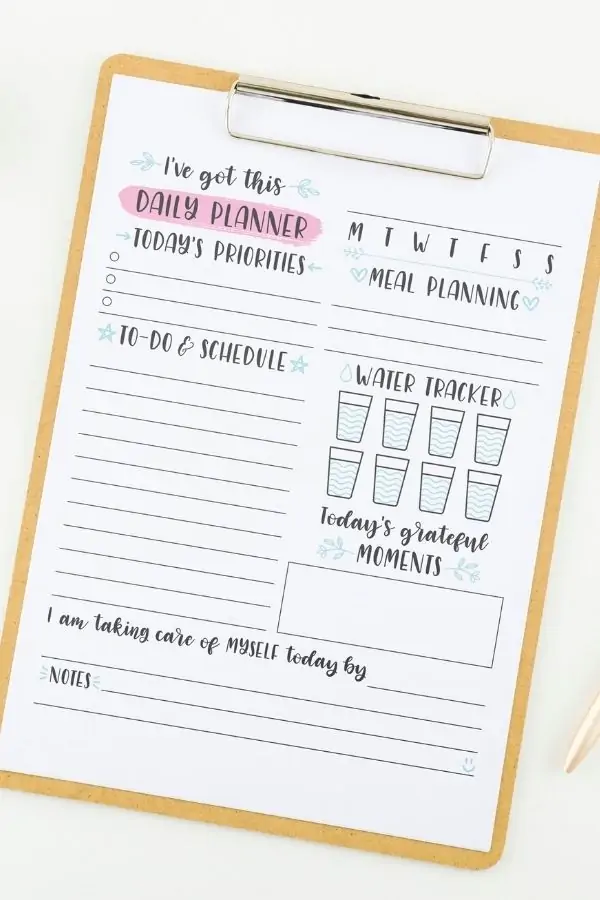 I've got this
DAILY PLANNER
TODAY'S PRIORITIES
M T W T F S S
MEAL PLANNING
TO-DO & SCHEDULE
WATER TRACKER
Today's grateful
MOMENTS
I am taking care of MYSELF today by
NOTES